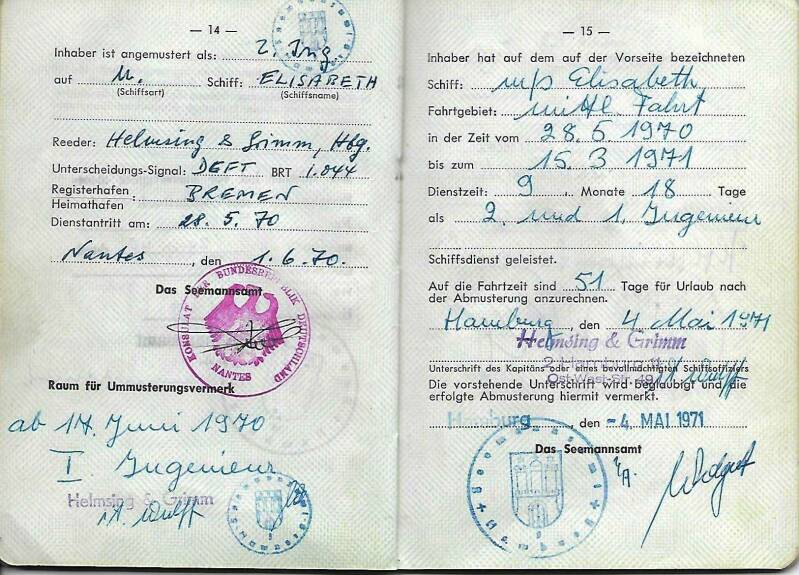 — 14 —
Inhaber ist angemustert als: 2. Ing
auf M. Schiff: ELISABETH
(Schiffsart) (Schiffsname)
Reeder: Helmsing & Grimm, Hbg.
Unterscheidungs-Signal: DEFT BRT 1.044
Registerhafen
Heimathafen BREMEN
Dienstantritt am: 28. 5. 70
Nantes, den 1. 6. 70.
Das Seemannsamt
KONSULAT DER BUNDESREPUBLIK DEUTSCHLAND
NANTES
Raum für Ummusterungsvermerk
ab 17. Juni 1970
I Ingenieur
Helmsing & Grimm
i.A. Wulff
— 15 —
Inhaber hat auf dem auf der Vorseite bezeichneten
Schiff: m/s Elisabeth
Fahrtgebiet: mittl. Fahrt
in der Zeit vom 28. 5 1970
bis zum 15. 3 1971
Dienstzeit: 9 Monate 18 Tage
als 2. und 1. Ingenieur
Schiffsdienst geleistet.
Auf die Fahrtzeit sind 51 Tage für Urlaub nach
der Abmusterung anzurechnen.
Hamburg, den 4 Mai 1971
Helmsing & Grimm
2 Hamburg 11
Ost-West-Str. 49
i.A. Wulff
Unterschrift des Kapitäns oder eines bevollmächtigten Schiffsoffiziers
Die vorstehende Unterschrift wird beglaubigt und die
erfolgte Abmusterung hiermit vermerkt.
Hamburg, den -4. MAI 1971
Das Seemannsamt
Seemannsamt
Hamburg